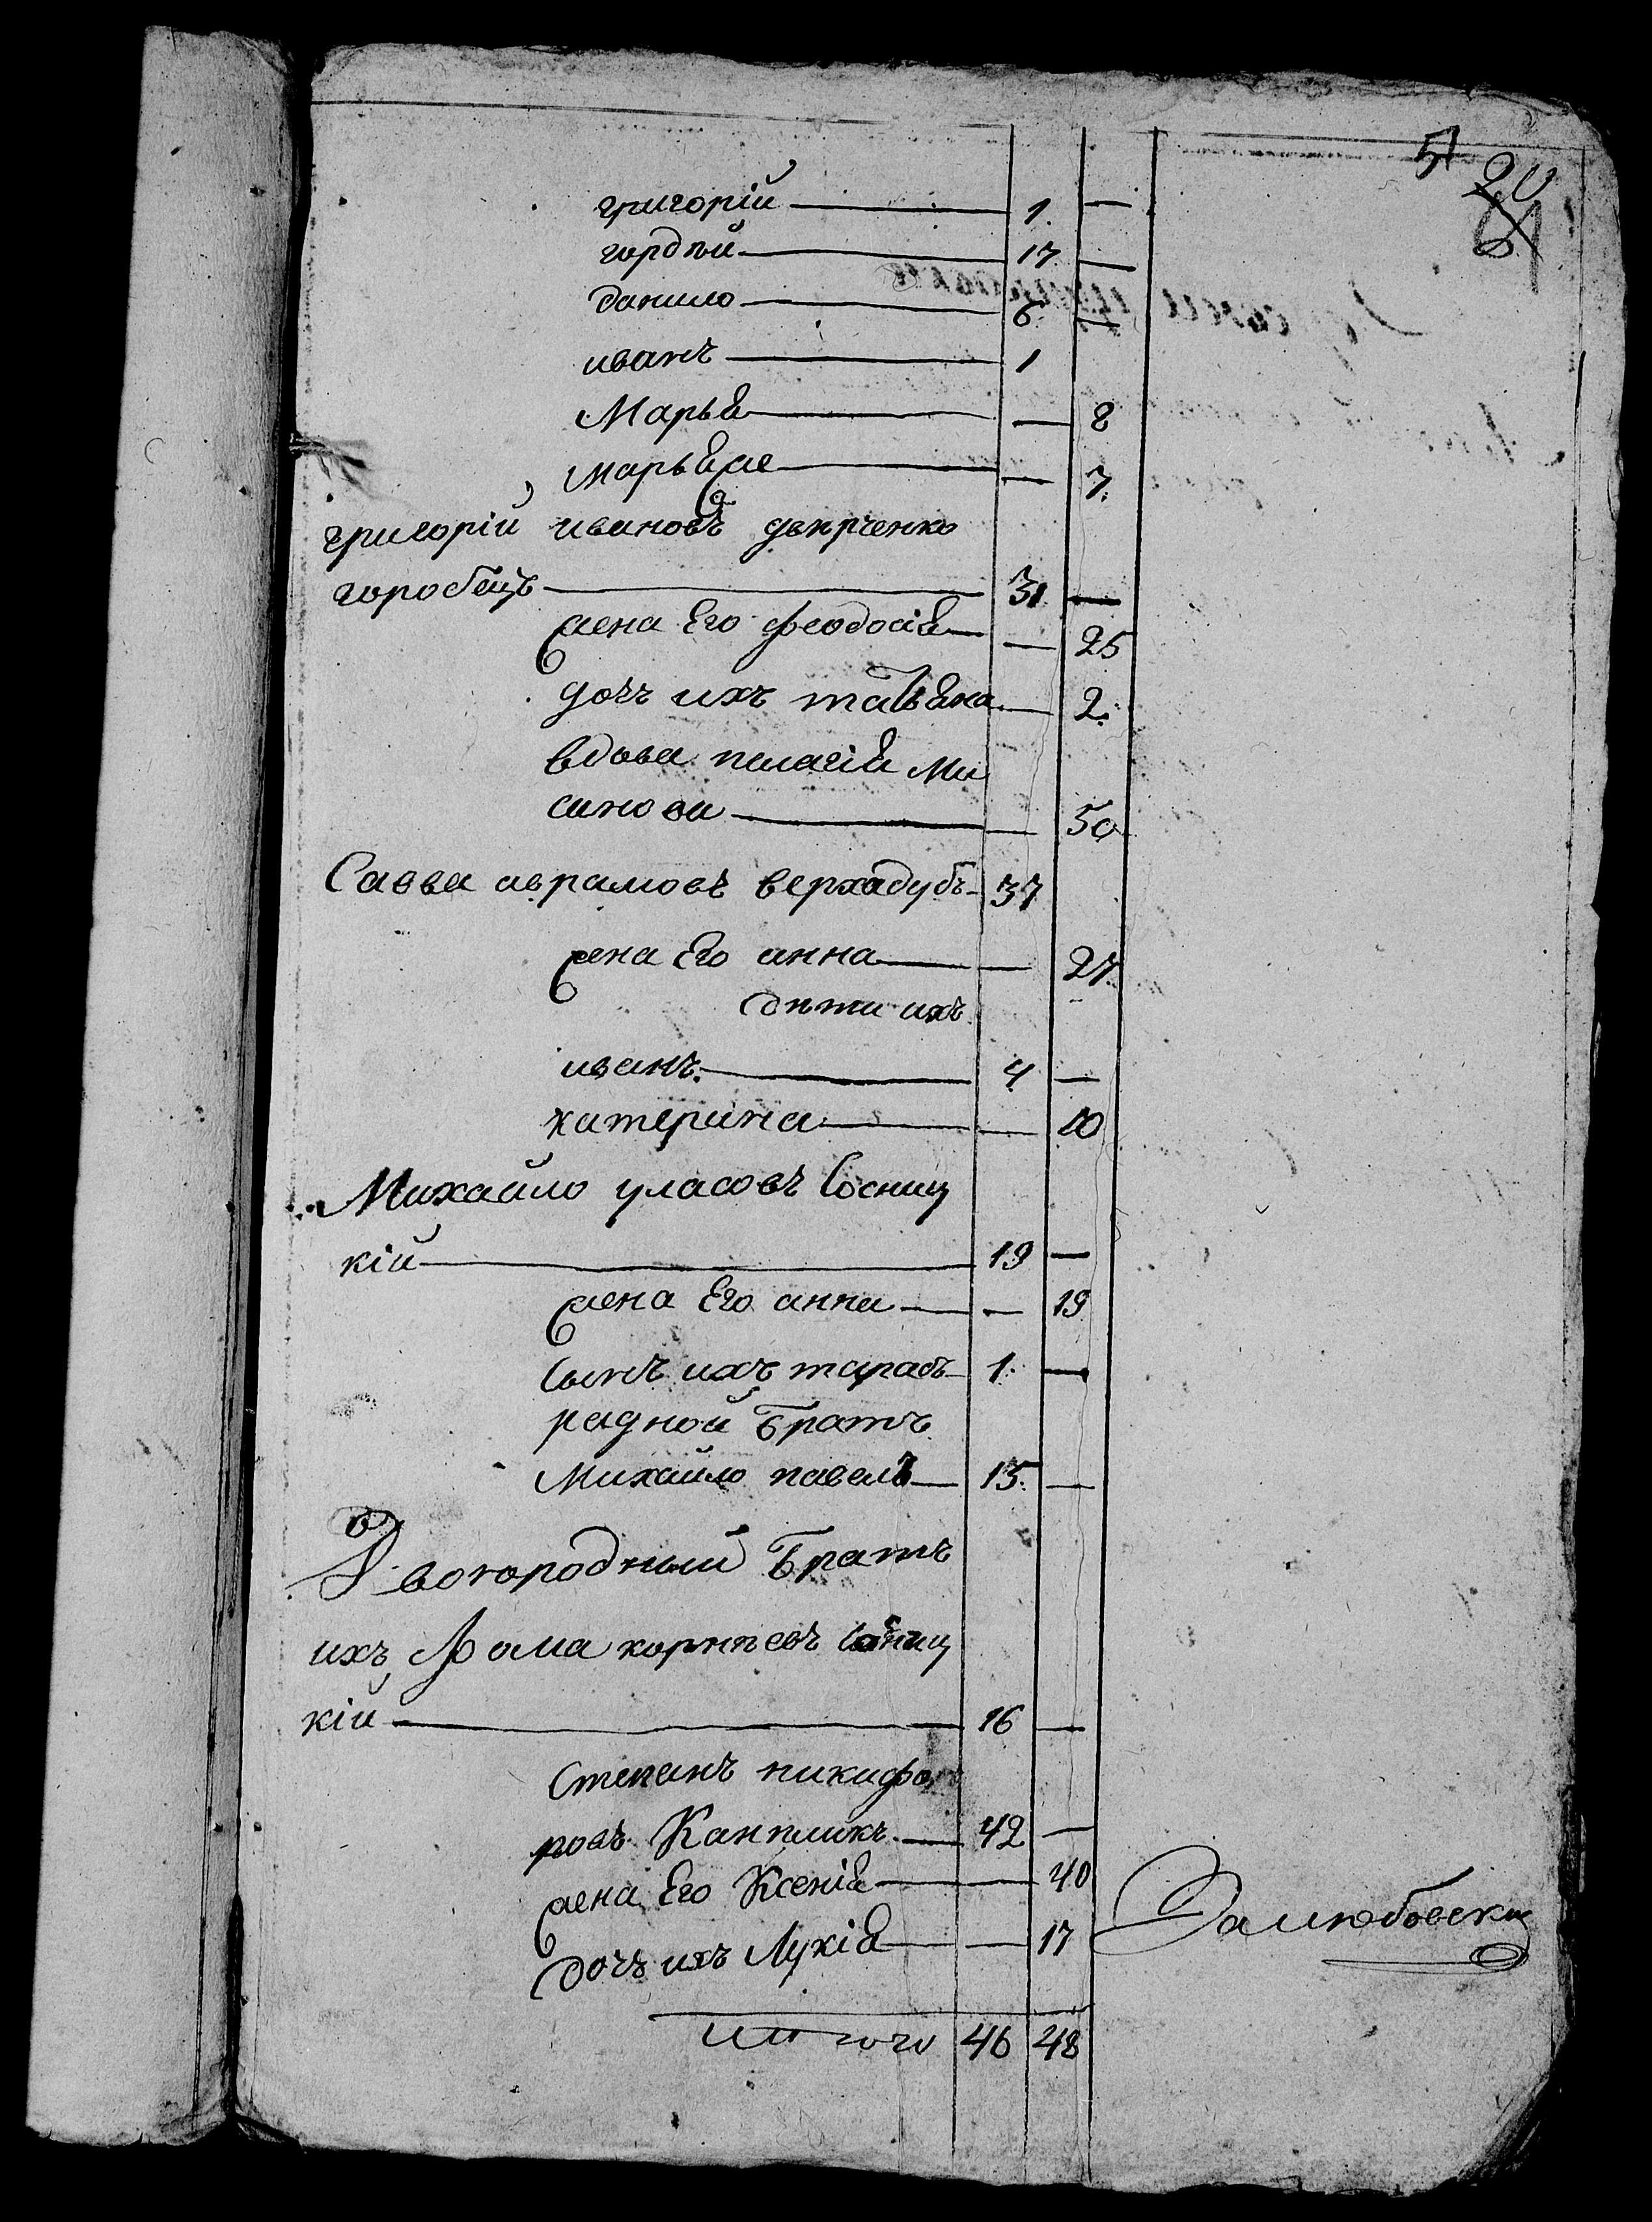 51
20
григорій — 1. —
гордѣй — 17 —
данило — 6. —
иванъ — 1
Марья — — 8
Марья же — — 7.
григорій ивановъ
горобецъ — 31 —
жена Его феодосія — — 25
дочъ ихъ татьяна — 2.
вдова пелагія Ми
синова — — 50
Савва аврамовъ верхадубъ — 37
жена Его анна — — 27.
дѣти ихъ
иванъ. — 4 —
катерина — — 10
Михайло уласовъ Сосниц
кій — 19 —
жена Его анна — — 19
Сынъ ихъ тарасъ — 1. —
радной братъ
Михайло павелъ — 15. —
Двогородный братъ
ихъ Фома корнѣевъ Сосниц
кій — 16 —
Степанъ никифо
ровъ — 42 —
жена Его Ксенія — — 40
дочъ ихъ Лукія — — 17
Итого 46 48